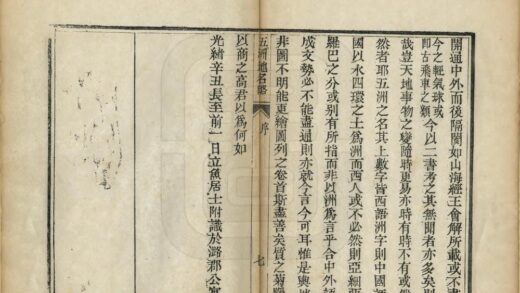 開通中外而後隔閡如山海經王會解所載或
今之輕氣球或
即古飛車之類
今以二書考之其無聞者亦多矣
哉豈天地事物之變隨時更易亦時有時不有或
然者耶五洲之名其上數字皆西語洲字則中國
國以水四環之土爲洲而西人或不必然則亞細
羅巴之分或別有所指而非以洲爲言乎合中外語
成文勢必不能盡通則亦就今言今可耳惟是輿地
非圖不明能更繪圖列之卷首斯盡善矣質之菊
以商之高君以爲何如
光緒辛丑長至前一日立魚居士附識於潞郡公
五洲地名
序
七